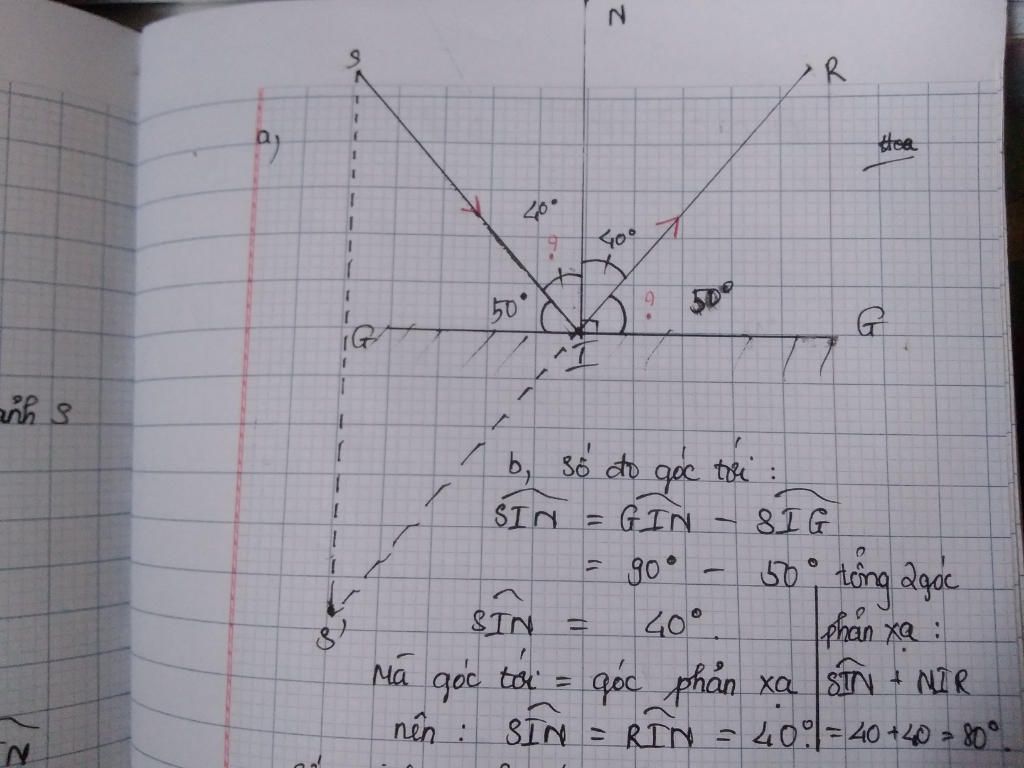 N
S
R
a,
Hoa
40°
?
40°
50°
?
50°
G
G
I
ảnh S
b, Số đo góc tới :
SIN = GIN - SIG
= 90° - 50°
SIN = 40°.
S'
Mà góc tới = góc phản xạ
nên : SIN = RIN = 40°.
tổng 2 góc
phản xạ :
SIN + NIR
= 40 + 40 = 80°.
IN